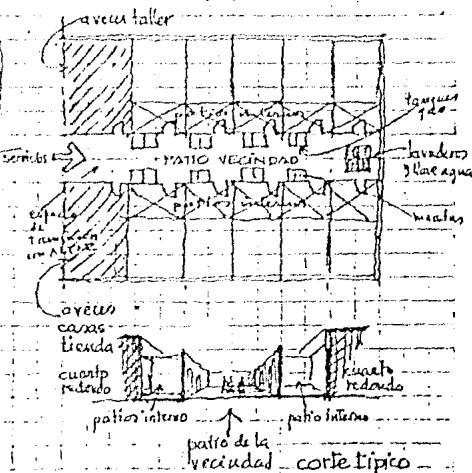 a veces taller
patios interiores
tanques
servicios
PATIO VECINDAD
lavaderos
y llave agua
espacio
de
transición
patios interiores
macetas
a veces
casas
tienda
cuarto
redondo
cuarto
redondo
patios interno
patio interno
patio de la
vecindad
corte típico